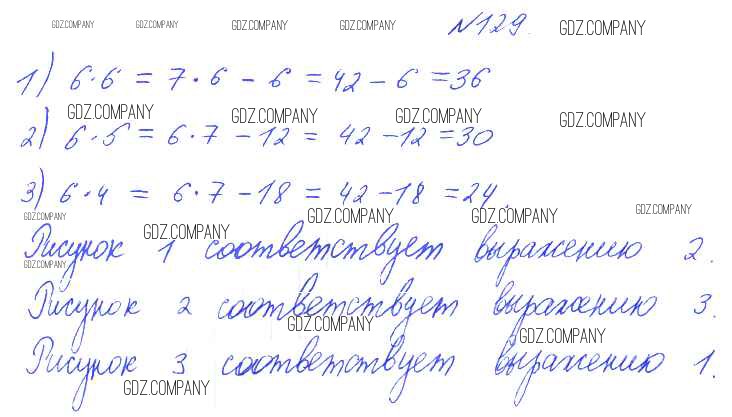 GDZ.COMPANY GDZ.COMPANY GDZ.COMPANY GDZ.COMPANY №129. GDZ.COMPANY
1) 6·6 = 7·6 - 6 = 42 - 6 = 36
GDZ.COMPANY GDZ.COMPANY GDZ.COMPANY GDZ.COMPANY
2) 6·5 = 6·7 - 12 = 42 - 12 = 30
3) 6·4 = 6·7 - 18 = 42 - 18 = 24.
GDZ.COMPANY GDZ.COMPANY GDZ.COMPANY GDZ.COMPANY GDZ.COMPANY
Рисунок 1 соответствует выражению 2.
GDZ.COMPANY
Рисунок 2 соответствует выражению 3.
GDZ.COMPANY GDZ.COMPANY
Рисунок 3 соответствует выражению 1.
GDZ.COMPANY